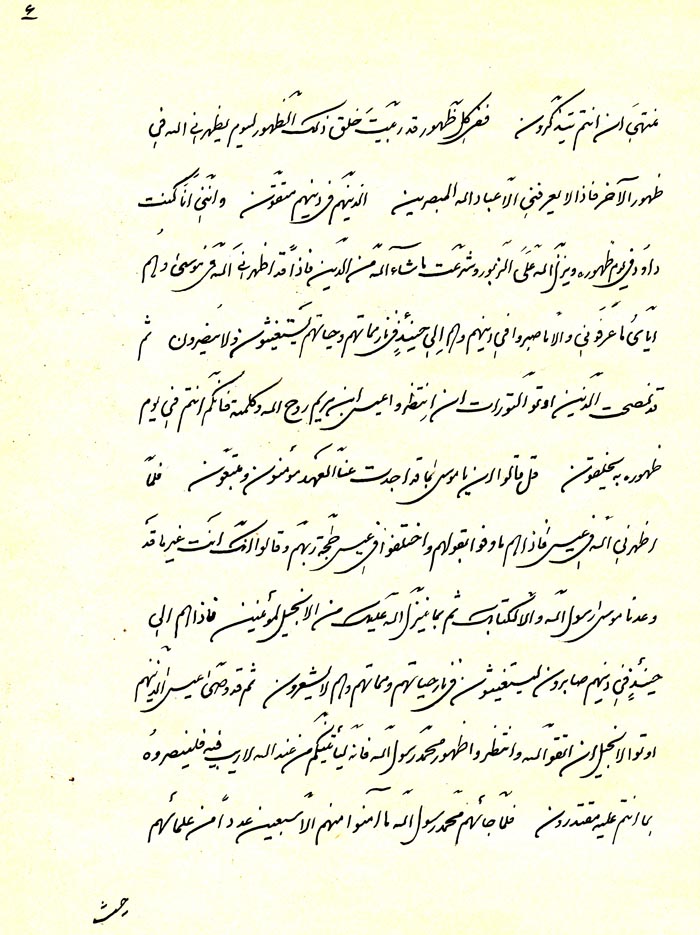 ۶
عنتهی ان انتم تتذکرون ففی کل ظهور قد ربیت خلق ذلک الظهور لیوم یظهرنی الله فی
ظهور الآخر فاذا لا یعرفنی الا عباد الله المبصرین الذینهم فی دینهم متقون و اننی انا کنت
داود فی یوم ظهوره و ینزل الله علی الزبور و شرعت ما شاء الله من الدین فاذا قد اظهرنی الله فی موسی و هم
ایای ما عرفونی و الا ما صبروا فی دینهم و هم الی حینئذ فی نار مماتهم و حیاتهم یستغیثون و لا ینصرون ثم
قد نصحت الذین اوتوا التورات ان انتظروا عیسی ابن مریم روح الله و کلمته فانکم انتم فی یوم
ظهوره به تخلصون قل قالوا ان یا موسی انا قد اخذت عنا العهد مؤمنون و متبعون فلما
اظهرنی الله فی عیسی فاذا هم ما وفوا بقولهم و اختلفوا فی عیسی حجة ربهم و قالوا انک انت غیر ما قد
وعدنا موسی رسول الله و الا کتابک ثم بما ینزل الله علیک من الانجیل لمؤمنین فاذا هم الی
حینئذ فی دینهم صابرون لیستغیثون فی نار حیاتهم و مماتهم و هم لا یشعرون ثم قد وصی عیسی الذینهم
اوتوا الانجیل ان اتقوا الله و انتظروا ظهور محمد رسول الله فانه لیأتینکم من عند الله لا ریب فیه فلینصروه
بما انتم علیه مقتدرون فلما جائهم محمد رسول الله ما آمنوا منهم الا سبعین عددا من علمائهم